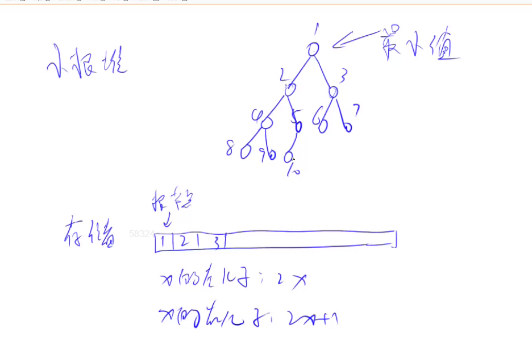 1
小根堆
最小值
2 3
4 5 6 7
8 9 10
根节点
存储
1 2 3
x的左儿子：2x
x的右儿子：2x+1